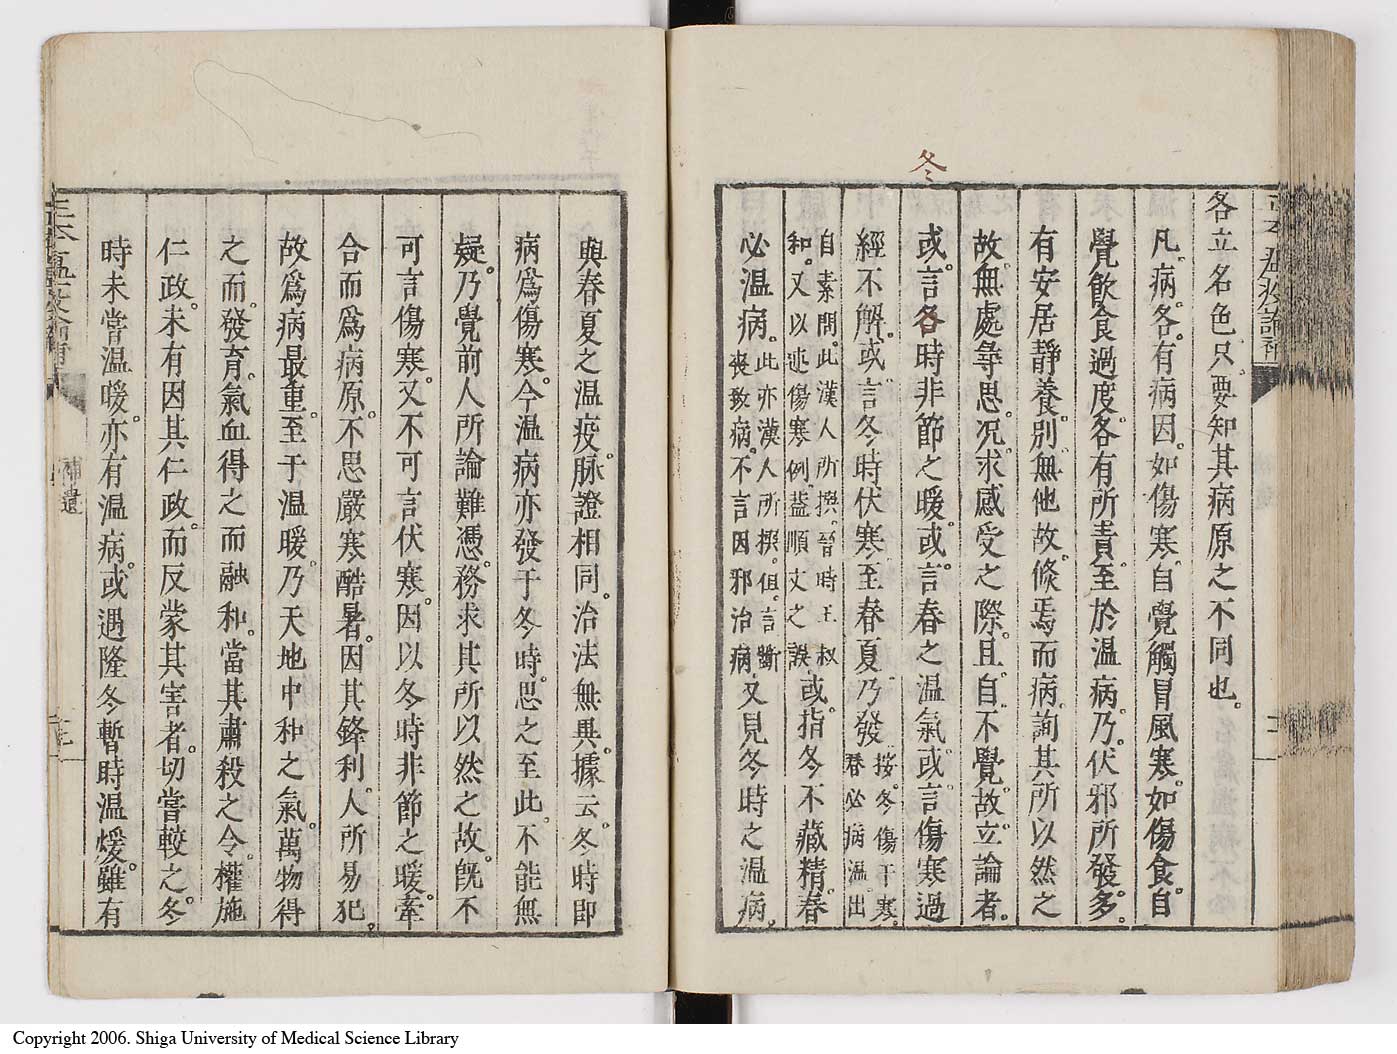 冬
各立名色只要知其病原之不同也。
凡病。各有病因。如傷寒。自覺觸冒風寒。如傷食。自
覺飲食過度。各有所責。至於温病。乃伏邪所發。多
有安居靜養。別無他故。倐焉而病。詢其所以然之
故。無處尋思。况求感受之際。且自不覺。故立論者。
或言各時非節之暖。或言春之温氣。或言傷寒過
經不解。或言冬時伏寒。至春夏乃發 按。冬傷于寒。春必病温。出
自素問。此漢人所撰。晉時王叔和。又以述傷寒例。葢順文之誤 或指冬不藏精。春
必温病。此亦漢人所撰。但言斷喪致病。不言因邪治病 又見冬時之温病。
與春夏之温疫。脉證相同。治法無異。據云。冬時即
病爲傷寒。今温病亦發于冬時。思之至此。不能無
疑。乃覺前人所論難憑。務求其所以然之故。旣不
可言傷寒。又不可言伏寒。因以冬時非節之暖。牽
合而爲病原。不思嚴寒酷暑。因其鋒利。人所易犯。
故爲病最重。至于温暖。乃天地中和之氣。萬物得
之而發育。氣血得之而融和。當其肅殺之令。權施
仁政。未有因其仁政。而反蒙其害者。切嘗較之。冬
時未嘗温暖。亦有温病。或遇隆冬暫時温煖。雖有
補遺